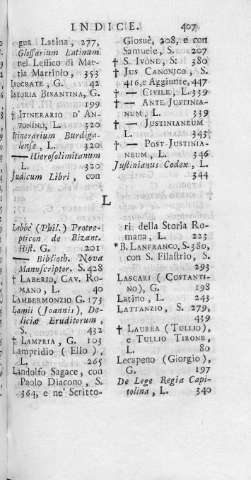 INDICE. 407
gua Latina, 277,
Glossarium Latinum
nel Lessico di Mat-
tia Martinio, 353
ISOCRATE, G. 42
ISTORIA BIZANTINA, G.
199
† ITINERARIO D' AN-
TONINO, L. 320
Itinerarium Burdiga-
lense, L. 320
—— Hierosolimitanum
L. 320
Judicum Libri, con
Giosuè, 208, e con
Samuele, S. 207
† S. IVONE, S. 380
† JUS CANONICO, S.
416, e Aggiunte, 447
† —— CIVILE, L. 339
† —— ANTE JUSTINIA-
NUM, L. 339
† —— JUSTINIANEUM
L. 343
† —— POST JUSTINIA-
NEUM, L. 346
Justinianus Codex, L.
344
L
Labbé (Phil.) Protre-
pticon de Bizant.
Hist. G. 201
—— Biblioth. Nova
Manuscriptor. S. 428
† LABERIO, CAV. RO-
MANO, L. 40
LAMBERMONZIO G. 173
Lamii (Joannis), De-
liciæ Eruditorum,
S. 432
† LAMPRIA, G. 103
Lampridio (Elio),
L. 265
Landolfo Sagace, con
Paolo Diacono, S.
364, e ne' Scritto-
ri della Storia Ro-
mana, L. 223
* B. LANFRANCO, S. 380,
con S. Filastrio, S.
293
LASCARI (COSTANTI-
NO), G. 198
Latino, L. 243
LATTANZIO, S. 279,
439
† LAUREA (TULLIO),
e TULLIO TIRONE,
L. 80
Lecapeno (Giorgio),
G. 197
De Lege Regia Capi-
tolina, L. 340